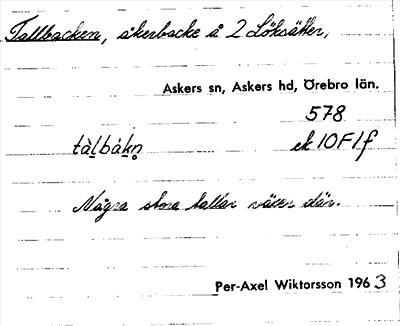 Tallbacken, åkerbacke å 2 Löksätter,
Askers sn, Askers hd, Örebro län.
578
tàl̲bàk̲n̥ ek 10F1f
Några stora tallar växer där.
Per-Axel Wiktorsson 1963